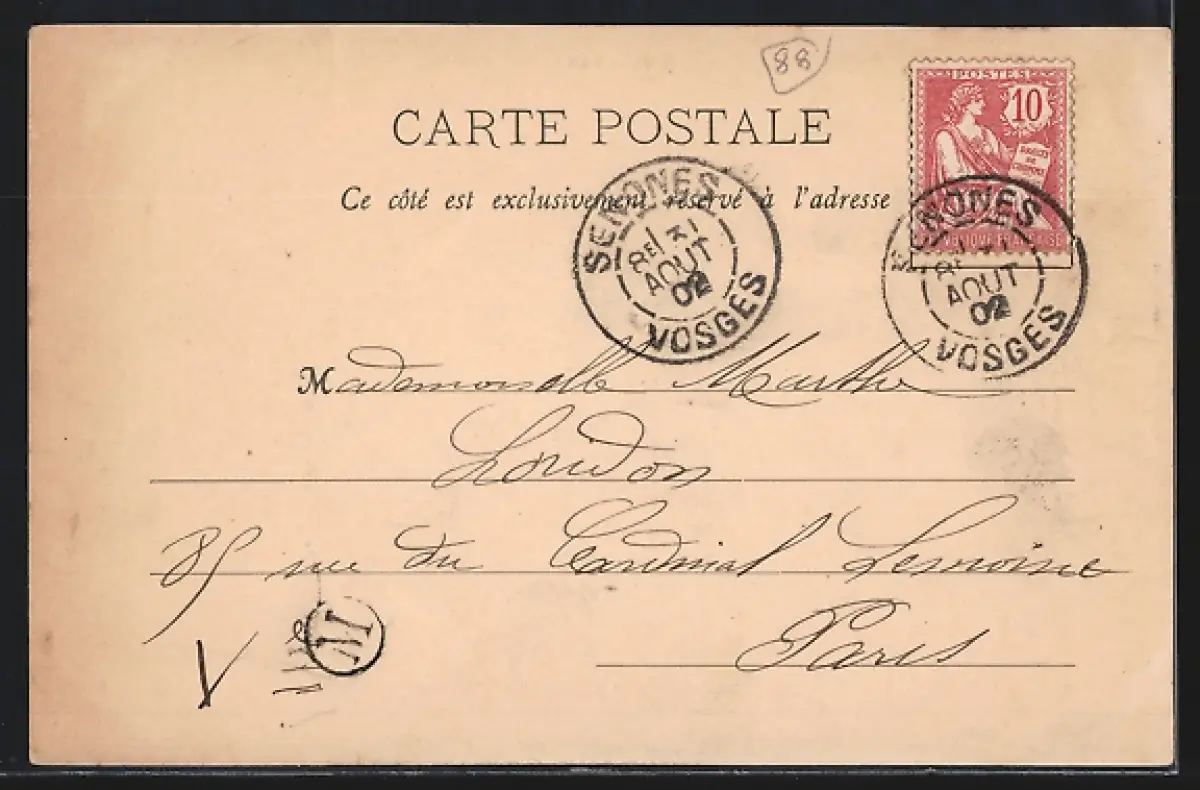 88
POSTES
10
DROITS
DE
L'HOMME
CARTE POSTALE
Ce côté est exclusivement réservé à l'adresse
SENONES
31
AOUT
02
VOSGES
SENONES
AOUT
02
VOSGES
Mademoiselle Marthe
Loridon
85 rue du Cardinal Lemoine
Paris
V
M